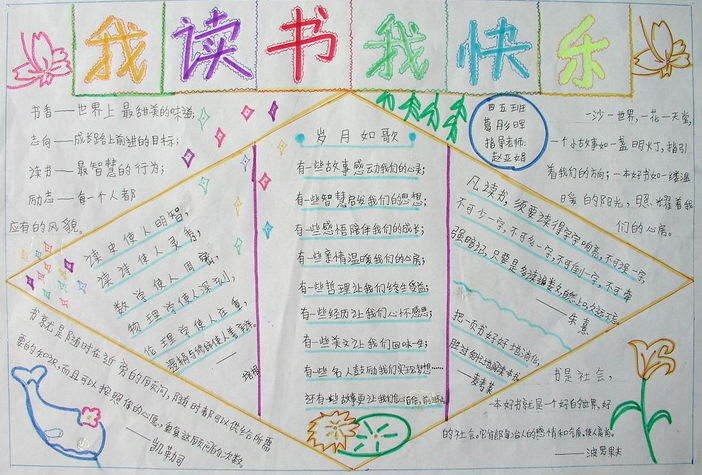 我读书我快乐
书香——世界上最甜美的味道;
志向——成长路上前进的目标;
读书——最智慧的行为;
励志——每一个人都
应有的风貌。
四五班
葛彤晖
指导老师:
赵亚娟
一沙一世界,一花一天堂,
一个小故事如一盏明灯,指引
着我们的方向;一本好书如一缕温
暖的阳光,照耀着我
们的心房。
读史使人明智,
读诗使人灵秀,
数学使人周密,
物理学使人深刻,
伦理学使人庄重,
逻辑与修辞使人善辩。
——培根
岁月如歌
有一些故事感动我们的心灵;
有一些智慧启发我们的思想;
有一些感悟陪伴我们的成长;
有一些亲情温暖我们的心房;
有一些哲理让我们终生受益;
有一些经历让我们心怀感恩;
有一些美文让我们回味一生;
有一些名人鼓励我们实现梦想……
还有一些故事更让我们
凡读书,须要读得字字响亮,不可误一字,
不可少一字,不可多一字,不可倒一字,不可牵
强暗记,只要是多诵遍数,自然上口,久远不忘。
——朱熹
把一页书好好地消化,
胜过匆忙地阅读一本书
——麦考莱
书就是随时在近旁的顾问,随时都可以供给你所需
要的知识,而且可以按照你的心愿,重复这顾问的次数。
——凯勒司
书是社会,
一本好书就是一个好的世界,好
的社会。它能陶冶人的感情和气质,使人高尚。
——波罗果夫